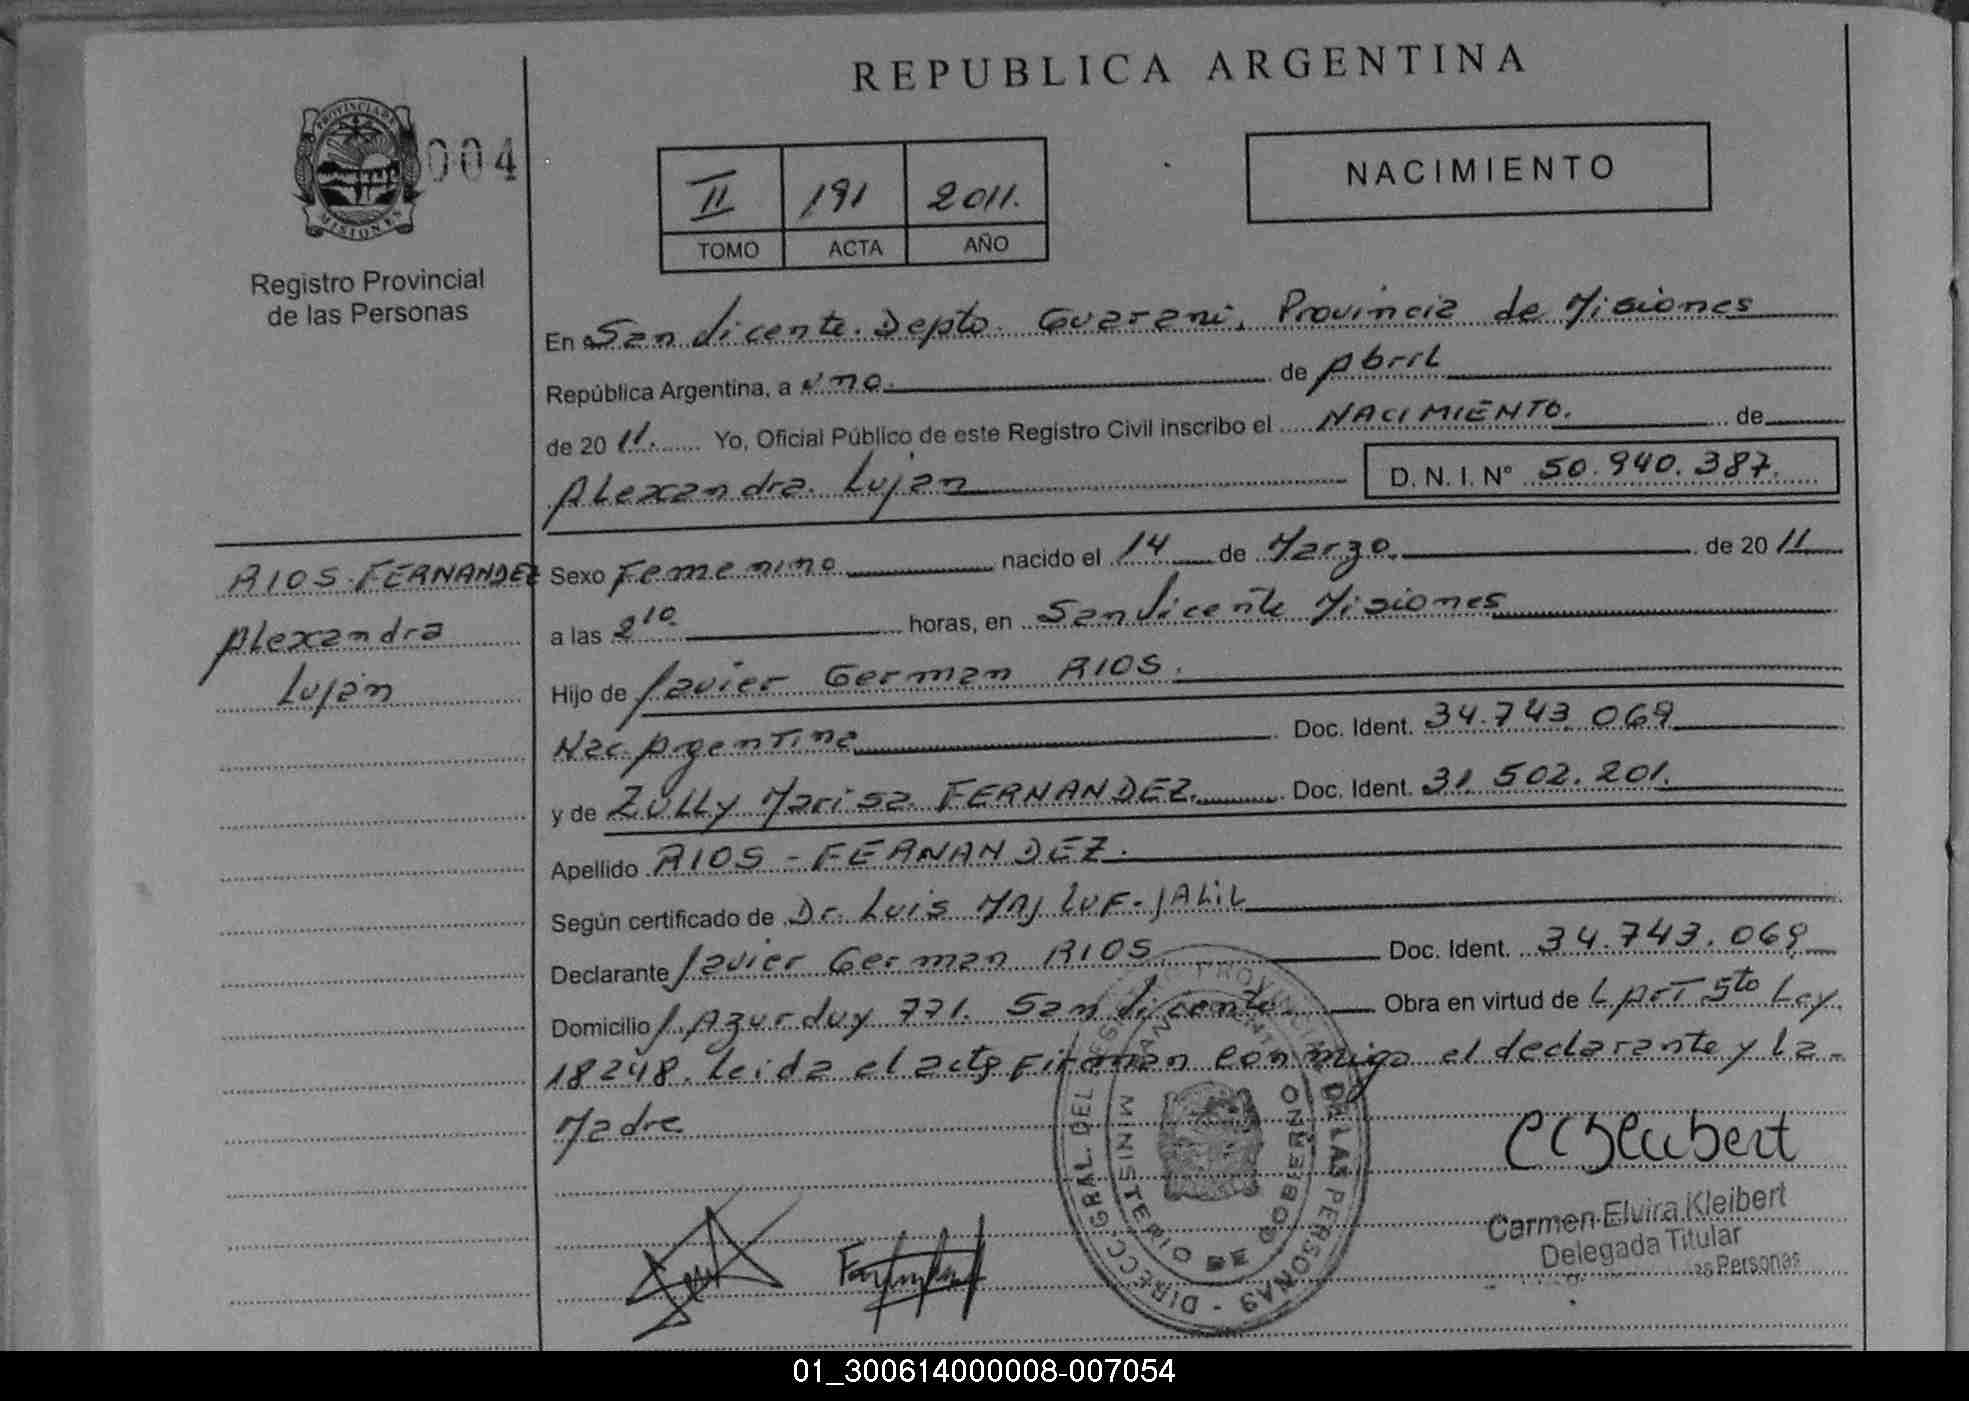 REPUBLICA ARGENTINA
PROVINCIA DE MISIONES
004
Registro Provincial
de las Personas
II 191 2011.
TOMO ACTA AÑO
NACIMIENTO
En San Vicente. Depto. Guarani, Provincia de Misiones
República Argentina, a uno. de Abril
de 20 11. Yo, Oficial Público de este Registro Civil inscribo el NACIMIENTO. de
Alexandra Luján D. N. I. Nº 50.940.387.
RIOS-FERNANDEZ
Alexandra
Luján
Sexo Femenino nacido el 14 de Marzo. de 20 11
a las 8 10. horas, en San Vicente Misiones
Hijo de Javier German RIOS.
Nac. Argentina Doc. Ident. 34.743.069
y de Zully Marisa FERNANDEZ. Doc. Ident. 31.502.201.
Apellido RIOS - FERNANDEZ.
Según certificado de Dr. Luis MAJLUF-JALIL
Declarante Javier German RIOS Doc. Ident. 34.743.069
Domicilio J. Azurduy 771. San Vicente. Obra en virtud de L Art 5to Ley
18248. Leida el acta Firman conmigo el declarante y la
Madre
DIRECC. GRAL. DEL REGISTRO PROVINCIAL DE LAS PERSONAS
MINISTERIO DE GOBIERNO
SAN VICENTE
Carmen Elvira Kleibert
Delegada Titular
Personas
01_300614000008-007054